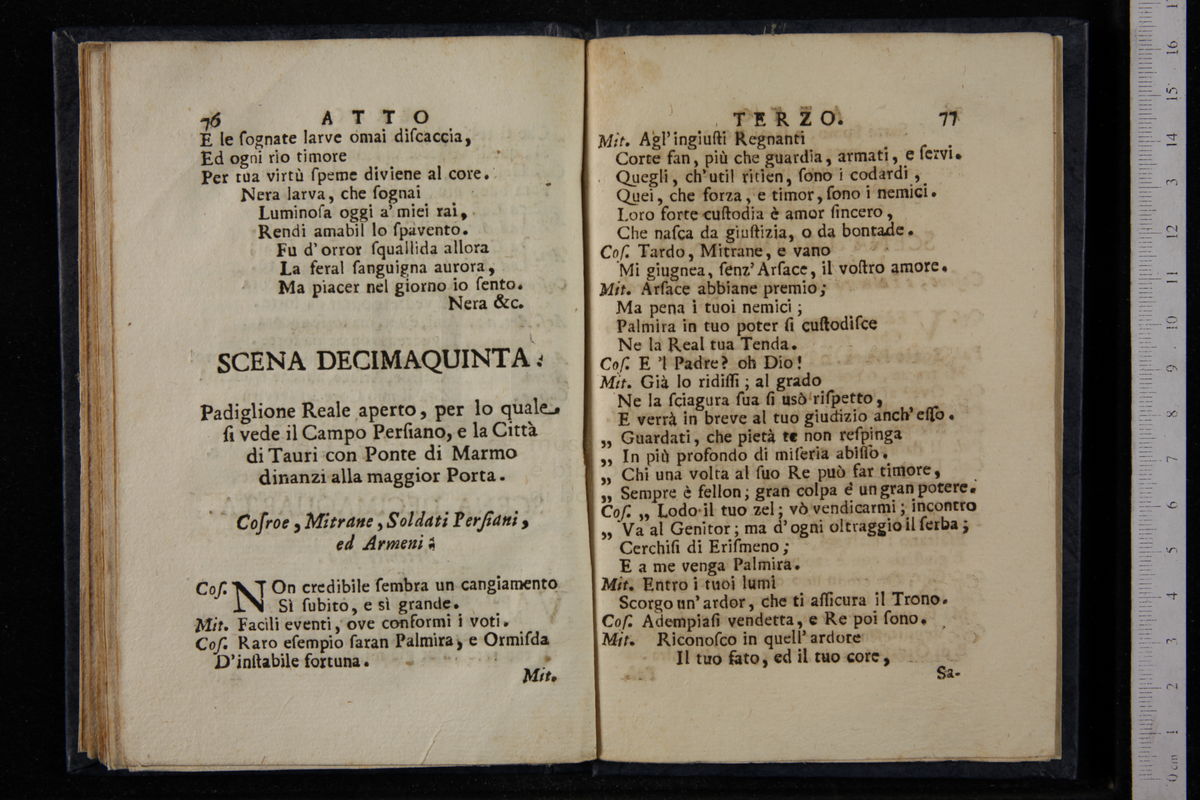 76 ATTO
E le ſognate larve omai diſcaccia,
Ed ogni rio timore
Per tua virtù ſpeme diviene al core.
Nera larva, che ſognai
Luminoſa oggi a' miei rai,
Rendi amabil lo ſpavento.
Fu d' orror ſquallida allora
La feral ſanguigna aurora,
Ma piacer nel giorno io ſento.
Nera &c.
SCENA DECIMAQUINTA.
Padiglione Reale aperto, per lo quale
ſi vede il Campo Perſiano, e la Città
di Tauri con Ponte di Marmo
dinanzi alla maggior Porta.
Coſroe, Mitrane, Soldati Perſiani,
ed Armeni.
Coſ. NOn credibile ſembra un cangiamento
Sì ſubito, e sì grande.
Mit. Facili eventi, ove conformi i voti.
Coſ. Raro eſempio ſaran Palmira, e Ormiſda
D'inſtabile fortuna.
Mit.
TERZO. 77
Mit. Agl'ingiuſti Regnanti
Corte fan, più che guardia, armati, e ſervi.
Quegli, ch'util ritien, ſono i codardi,
Quei, che forza, e timor, ſono i nemici.
Loro forte cuſtodia è amor ſincero,
Che naſca da giuſtizia, o da bontade.
Coſ. Tardo, Mitrane, e vano
Mi giugnea, ſenz'Arſace, il voſtro amore.
Mit. Arſace abbiane premio;
Ma pena i tuoi nemici;
Palmira in tuo poter ſi cuſtodiſce
Ne la Real tua Tenda.
Coſ. E 'l Padre? oh Dio!
Mit. Già lo ridiſſi; al grado
Ne la ſciagura ſua ſi usò riſpetto,
E verrà in breve al tuo giudizio anch' eſſo.
„ Guardati, che pietà te non reſpinga
„ In più profondo di miſeria abiſſo.
„ Chi una volta al ſuo Re può far timore,
„ Sempre è fellon; gran colpa é un gran potere.
Coſ. „ Lodo il tuo zel; vò vendicarmi; incontro
„ Va al Genitor; ma d'ogni oltraggio il ſerba;
Cerchiſi di Eriſmeno;
E a me venga Palmira.
Mit. Entro i tuoi lumi
Scorgo un'ardor, che ti aſſicura il Trono.
Coſ. Adempiaſi vendetta, e Re poi ſono.
Mit. Riconoſco in quell'ardore
Il tuo fato, ed il tuo core,
Sa-
0 cm 1 2 3 4 5 6 7 8 9 10 11 12 13 14 15 16